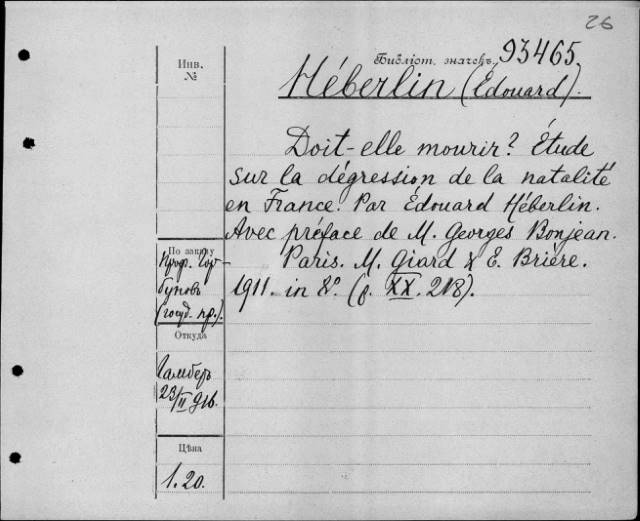 26
Инв.
№
Библіот. значекъ 93465
Héberlin (Édouard).
Doit-elle mourir? Étude
sur la dégression de la natalité
en France. Par Édouard Héberlin.
Avec préface de M. Georges Bonjean.
Paris. M. Giard & E. Brière.
1911. in 8º. (p. XX. 218).
По заказу
Проф. Гор-
бунов
(госуд. пр.).
Откуда
Гамберъ
23/II 916.
Цѣна
1.20.